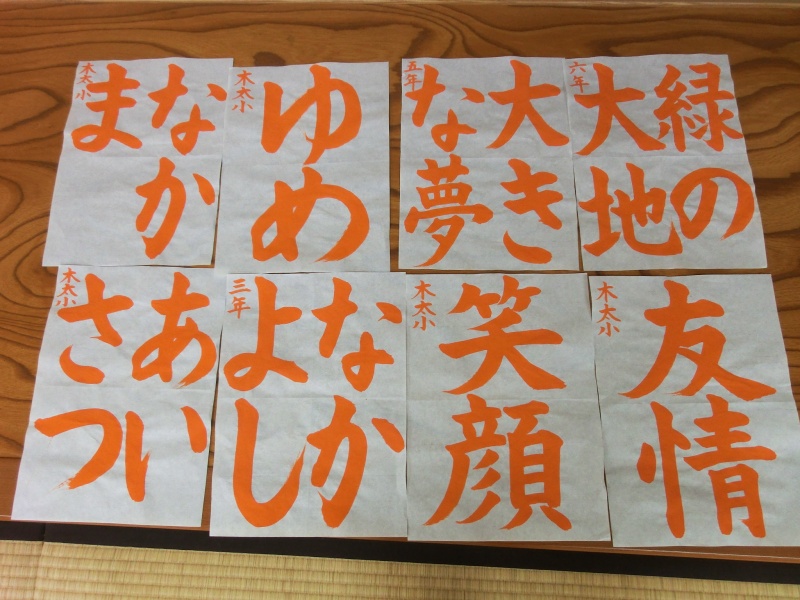 なか
ま
木太小
ゆめ
木太小
大き
な夢
五年
緑の
大地
六年
あい
さつ
木太小
なか
よし
三年
笑顔
木太小
友情
木太小